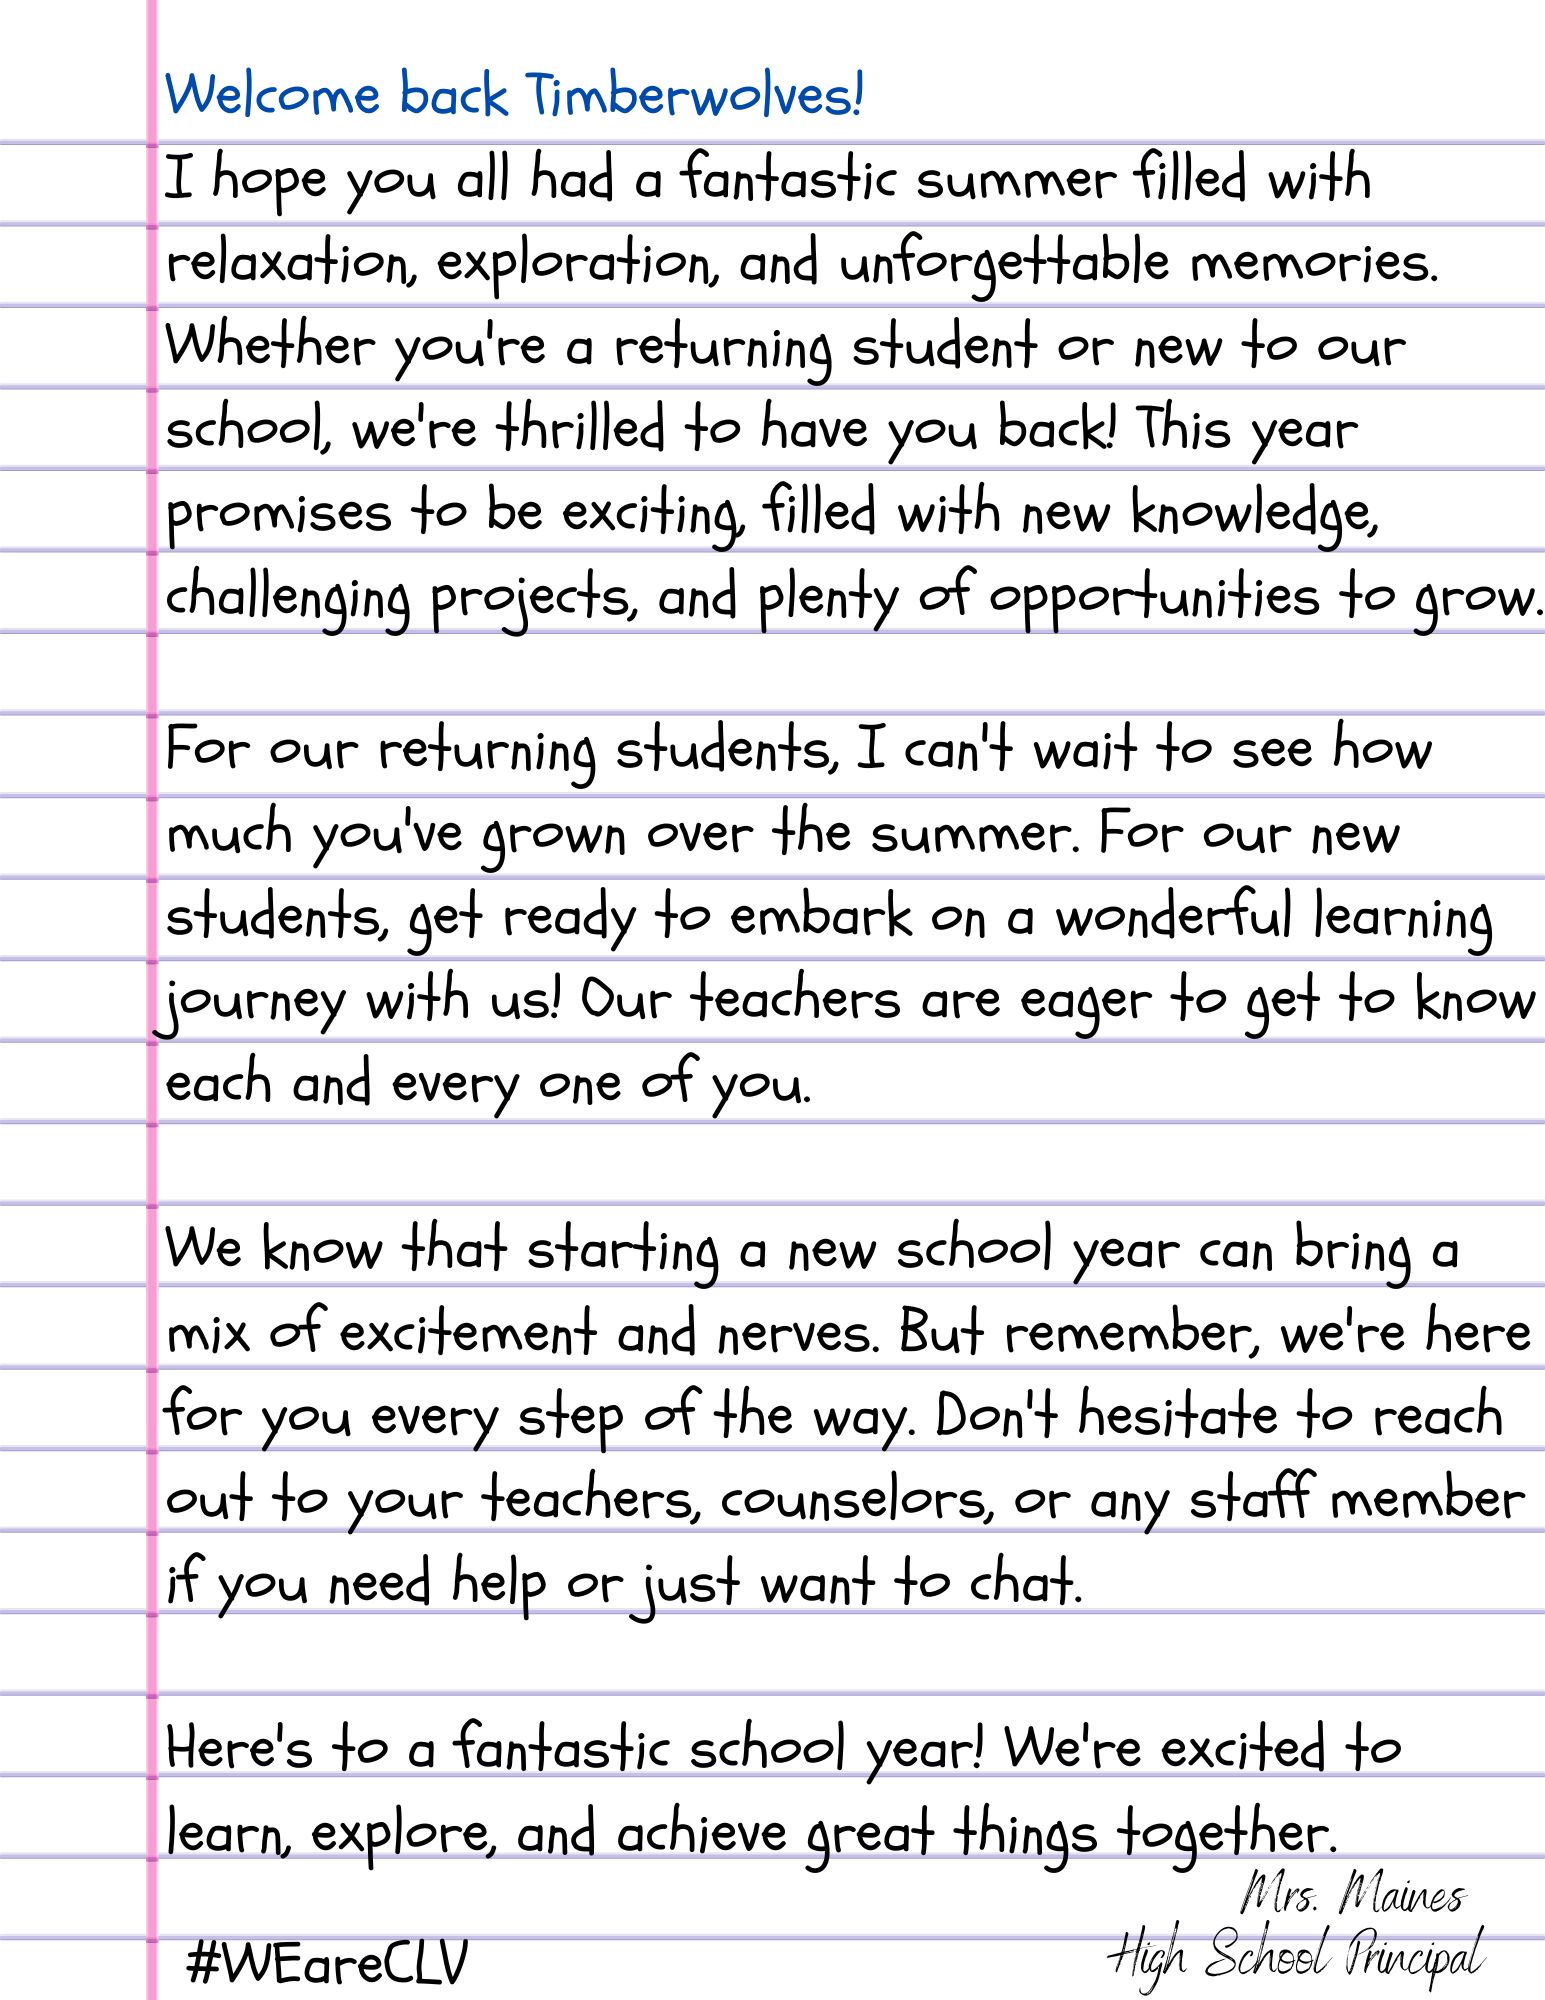 Welcome back Timberwolves!
I hope you all had a fantastic summer filled with
relaxation, exploration, and unforgettable memories.
Whether you're a returning student or new to our
school, we're thrilled to have you back! This year
promises to be exciting, filled with new knowledge,
challenging projects, and plenty of opportunities to grow.
For our returning students, I can't wait to see how
much you've grown over the summer. For our new
students, get ready to embark on a wonderful learning
journey with us! Our teachers are eager to get to know
each and every one of you.
We know that starting a new school year can bring a
mix of excitement and nerves. But remember, we're here
for you every step of the way. Don't hesitate to reach
out to your teachers, counselors, or any staff member
if you need help or just want to chat.
Here's to a fantastic school year! We're excited to
learn, explore, and achieve great things together.
Mrs. Maines
High School Principal
#WEareCLV